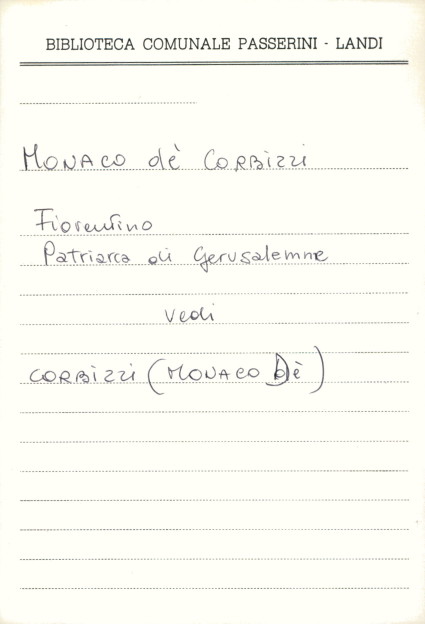 BIBLIOTECA COMUNALE PASSERINI - LANDI
MONACO dè CORBIZZI
Fiorentino
Patriarca di Gerusalemme
vedi
CORBIZZI (MONACO Dè)